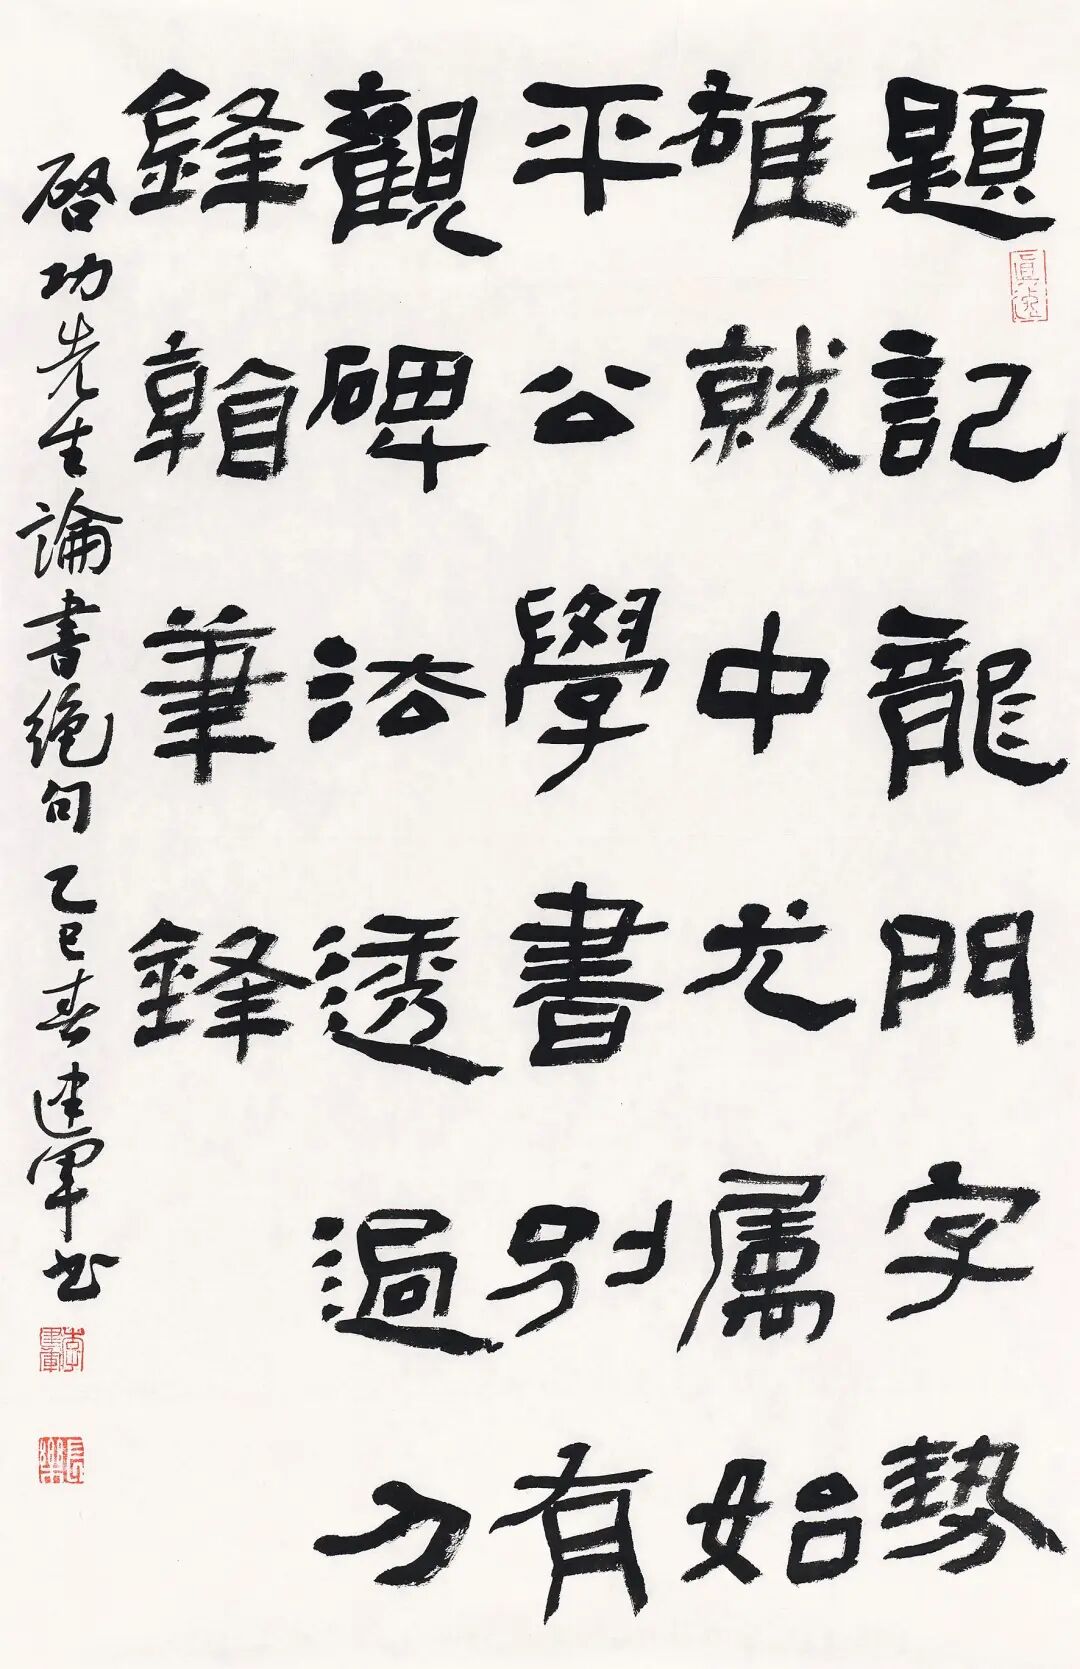 題記龍門字勢
雄就中尤属始
平公學書別有
觀碑法透過刀
鋒看筆鋒
啓功先生論書絶句乙巳春建軍书
李建軍
長樂